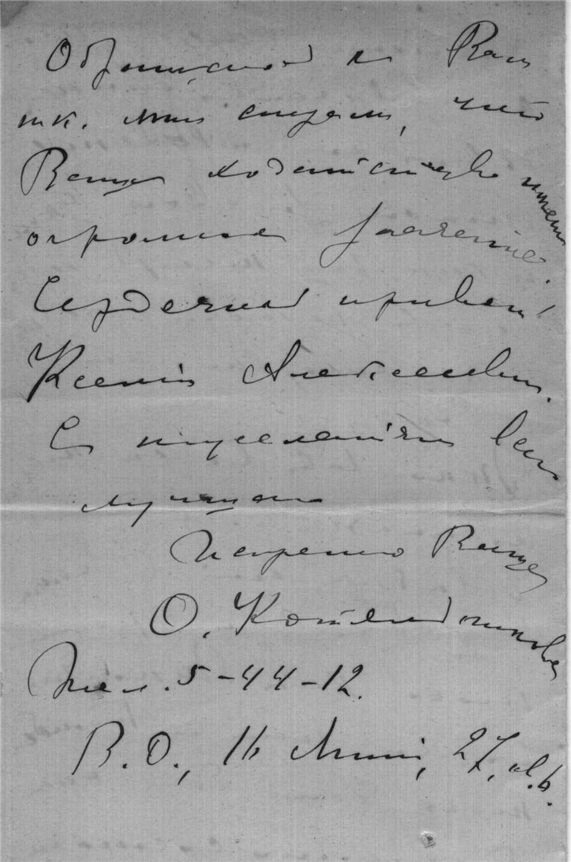 Обращаюсь к Вам
т.к. мне сказали, что
Ваше ходатайство имеет
огромное значение.
Сердечный привет
Ксении Алексеевне.
С пожеланием всего
лучшего
Искренно Ваша
О. Котельникова
Тел. 5-44-12.
В.О., 16 Линия, 27, кв. 6.